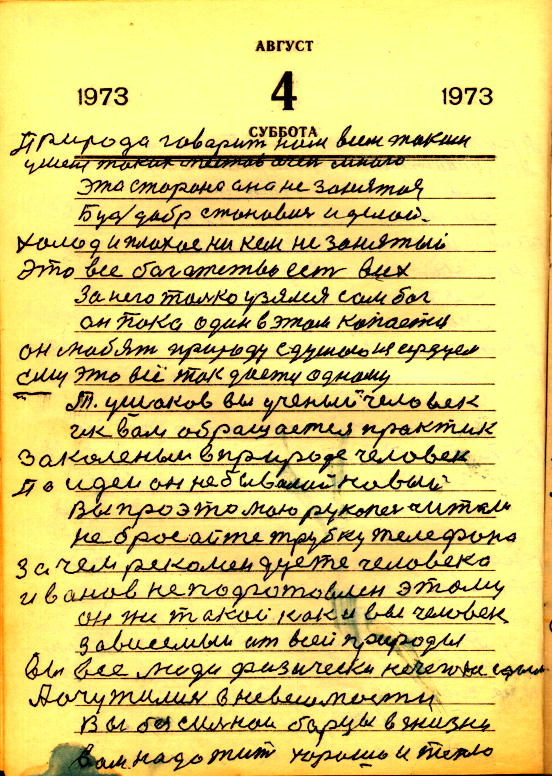 АВГУСТ
1973 4 1973
СУББОТА
Природа говарит нам всем таким
таких местов очен много
Эта сторона она не занятая
Буд добр становис и делай.
холод и плохое ни кем не занятый
Это все богатетво ест в них
За него толко узялся сам бог
он пока один в этом копается
он любят природу с душою и сердцем
ему это всё так дается одному
Т. ушаков вы ученый человек
и к вам обращается практик
Закаленый в природе человек
По идеи он небывалий новый
Вы про это мою рукопис читали
не бросайте трубку телефона
За чем рекомендуете человека
иванов не подготовлен этому
он жи такой как и вы человек
зависемый от всей природы
Вы все люди физически ничего не
А очутилис в невесомости
Вы борцы в жизни
вам надо жит хорошо и тепло